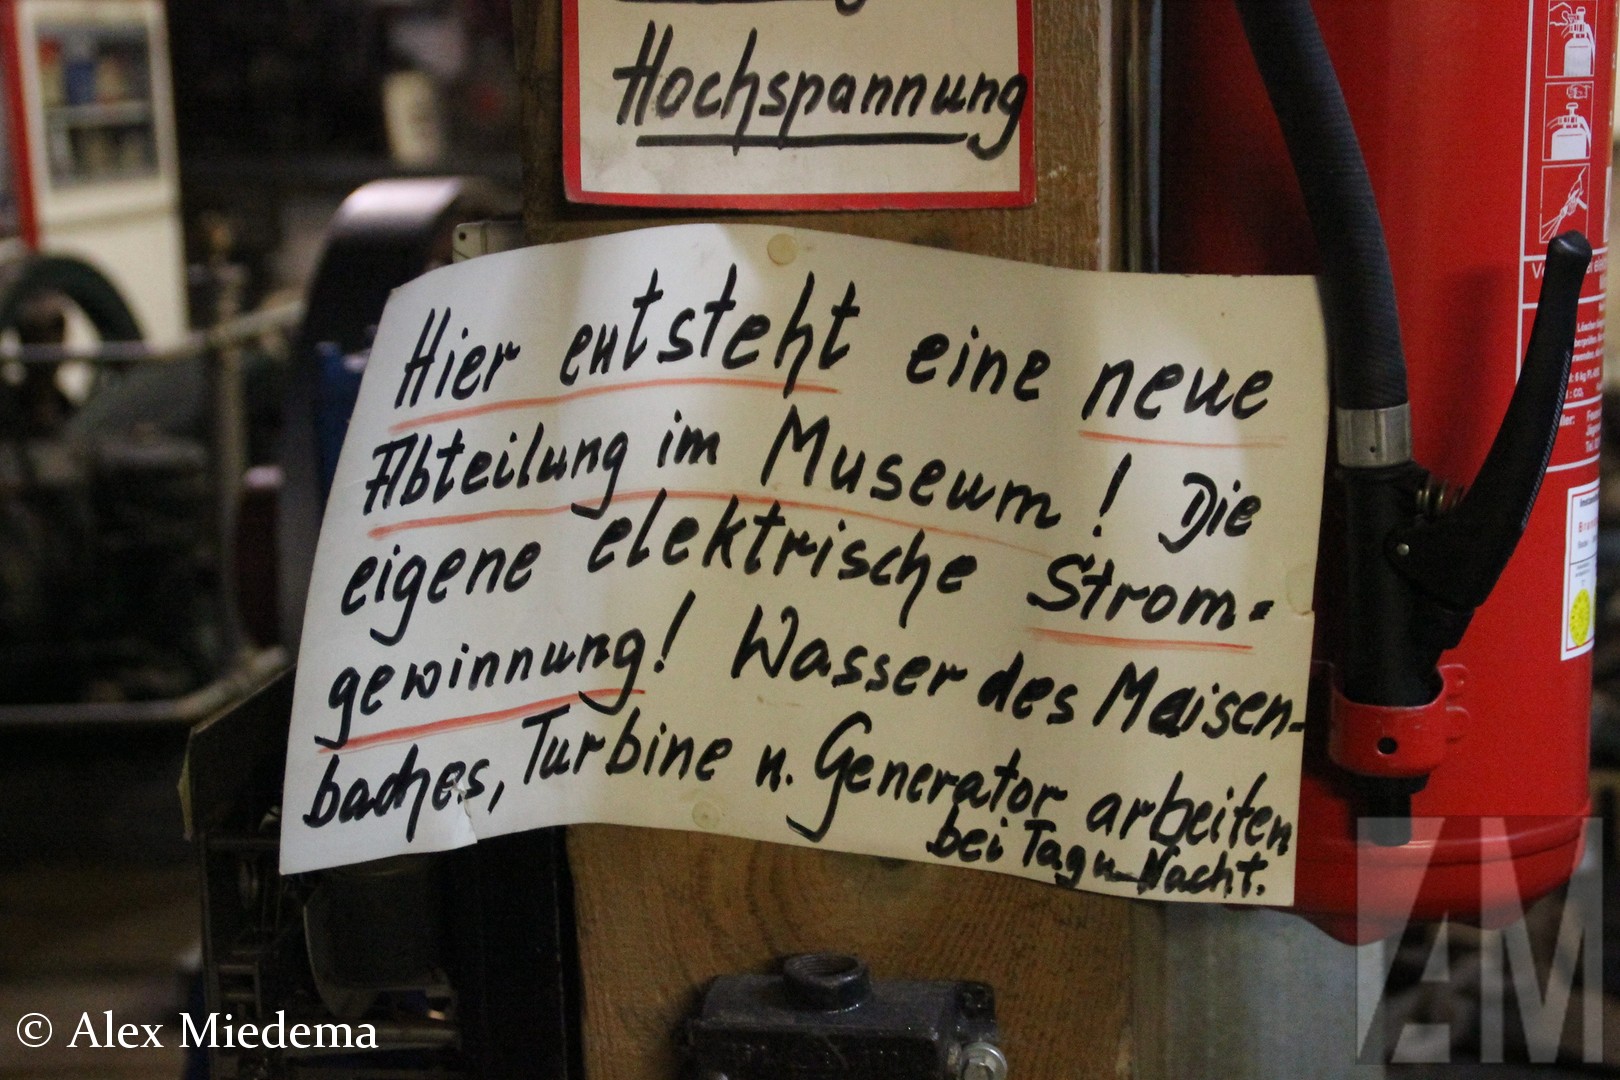 Hochspannung
Hier entsteht eine neue
Abteilung im Museum! Die
eigene elektrische Strom-
gewinnung! Wasser des Maisen-
baches, Turbine u. Generator arbeiten
bei Tag u. Nacht.
© Alex Miedema
AM